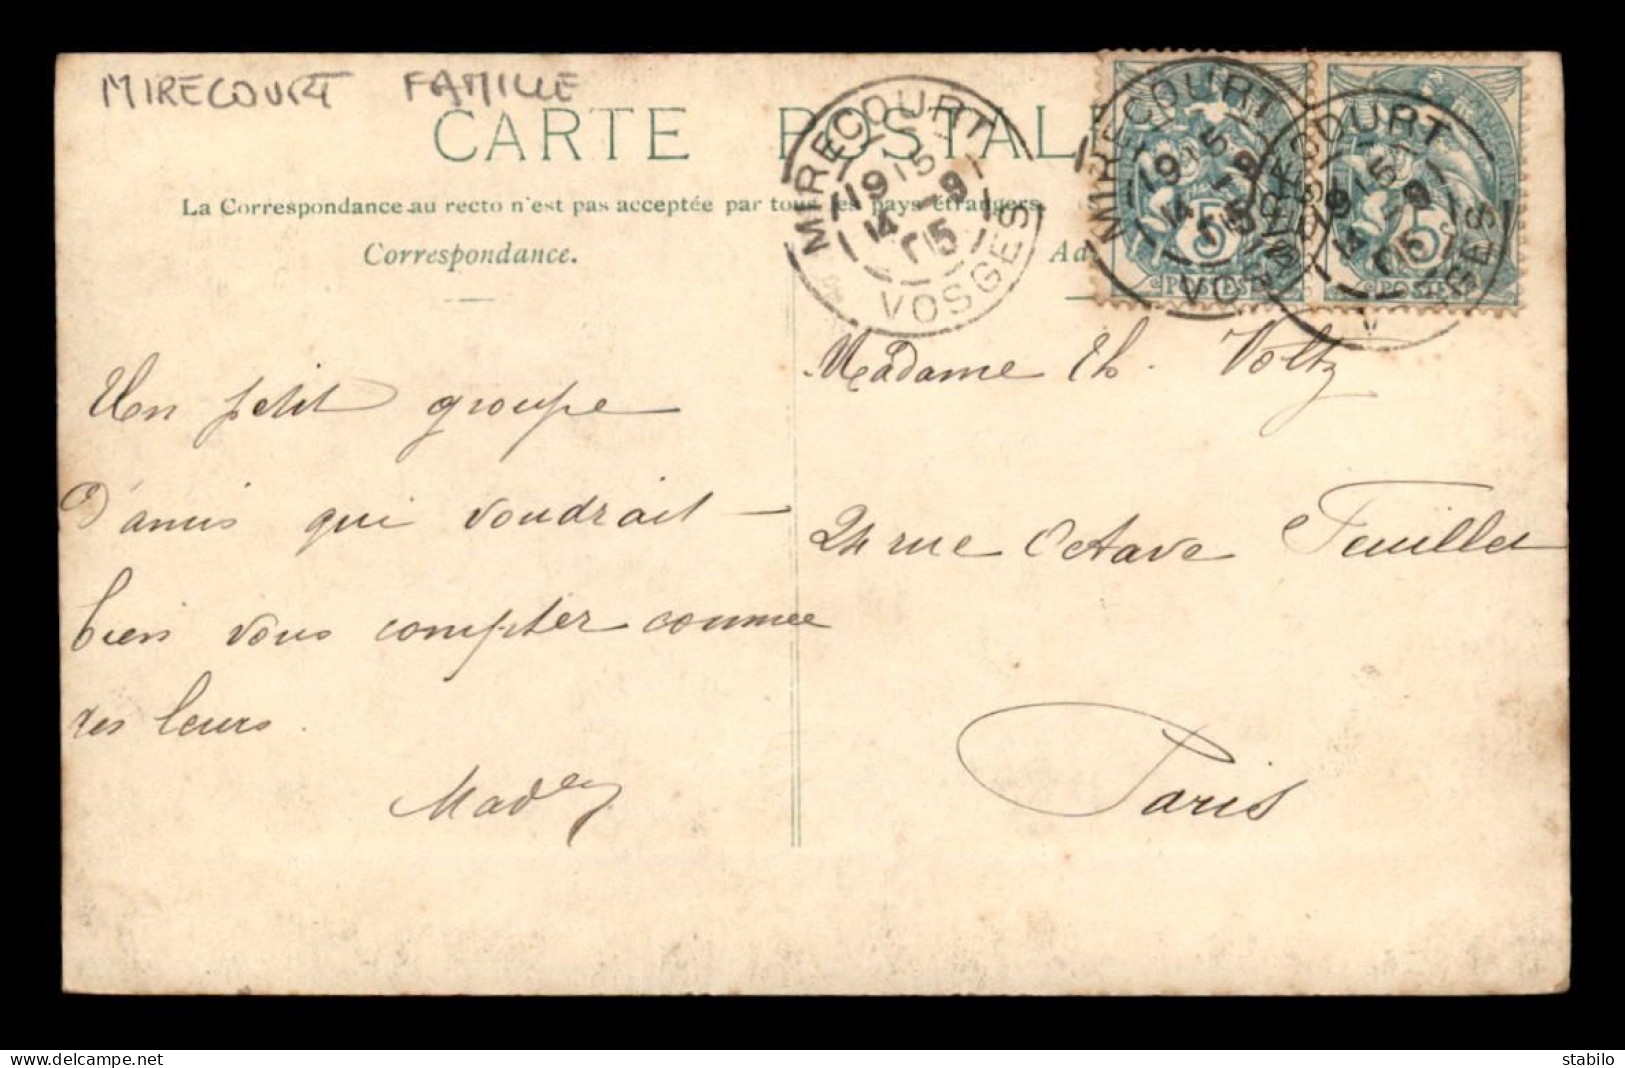 MIRECOURT FAMILLE
CARTE POSTAL
La Correspondance au recto n'est pas acceptée par tous les pays étrangers.
Correspondance.
Ad
MIRECOURT
19 15
14 -9
15
VOSGES
MIRECOURT
19 15
14 -9
15
VOSGES
MIRECOURT
19 15
14 -9
15
VOSGES
5
POSTES
5
POSTES
Un petit groupe
d'amis qui voudrait
bien vous compter comme
des leurs.
Madame Th. Voltz
24 rue Octave Feuillet
Paris
delcampe.net
stabilo